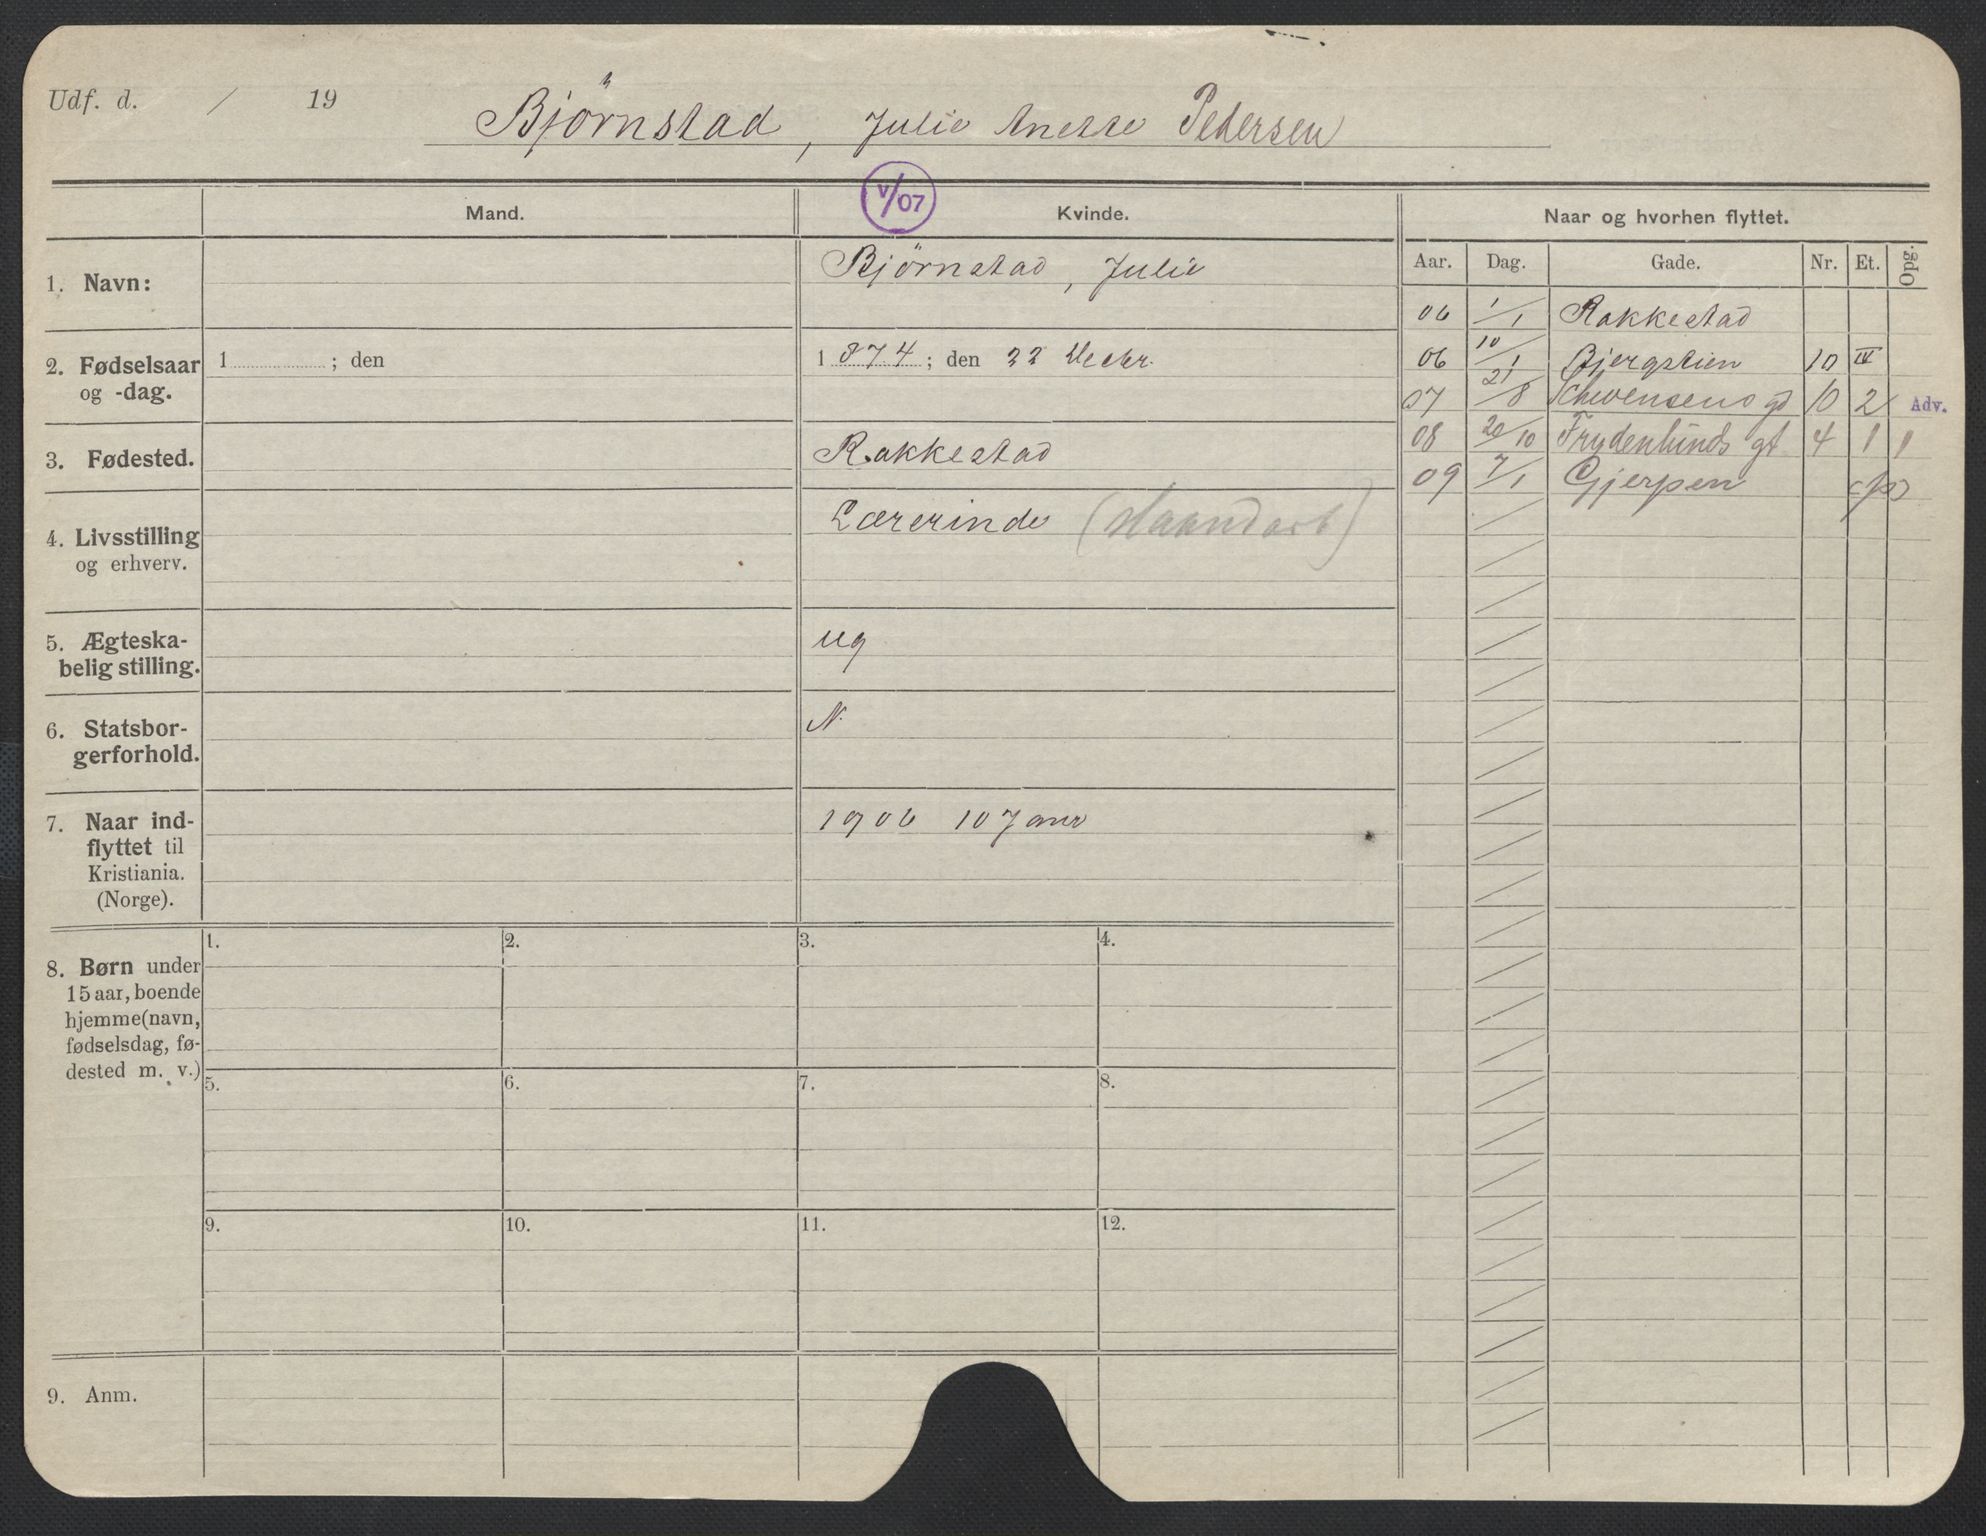 Udf. d. / 19
Bjørnstad, Julie Anette Pedersen
Mand.
V/07
Kvinde.
Naar og hvorhen flyttet.
Aar. Dag. Gade. Nr. Et. Opg.
1. Navn:
Bjørnstad, Julie
2. Fødselsaar og -dag.
1 ; den
1 874 ; den 22 Decbr.
3. Fødested.
Rakkestad
4. Livsstilling og erhverv.
Lærerinde (Haandarb)
5. Ægteska-
belig stilling.
ug
6. Statsbor-
gerforhold.
N.
7. Naar ind-
flyttet til
Kristiania.
(Norge).
1906 10 Janr
06 1/1 Rakkestad
06 10/1 Bjergstien 10 IV
07 21/8 Schwensens gd 10 2 Adv.
08 20/10 Frydenlunds gt 4 1 1
09 7/1 Gjerpen
8. Børn under
15 aar, boende
hjemme (navn,
fødselsdag, fø-
dested m. v.)
1. 2. 3. 4.
5. 6. 7. 8.
9. 10. 11. 12.
9. Anm.